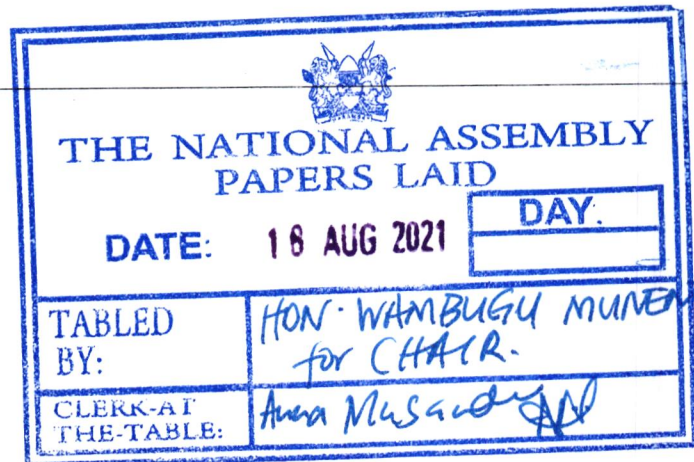 THE NATIONAL ASSEMBLY
PAPERS LAID
DATE: 18 AUG 2021
DAY.
TABLED BY:
HON. WAMBUGU MUNEN
for CHAIR.
CLERK-AT THE-TABLE:
Anna